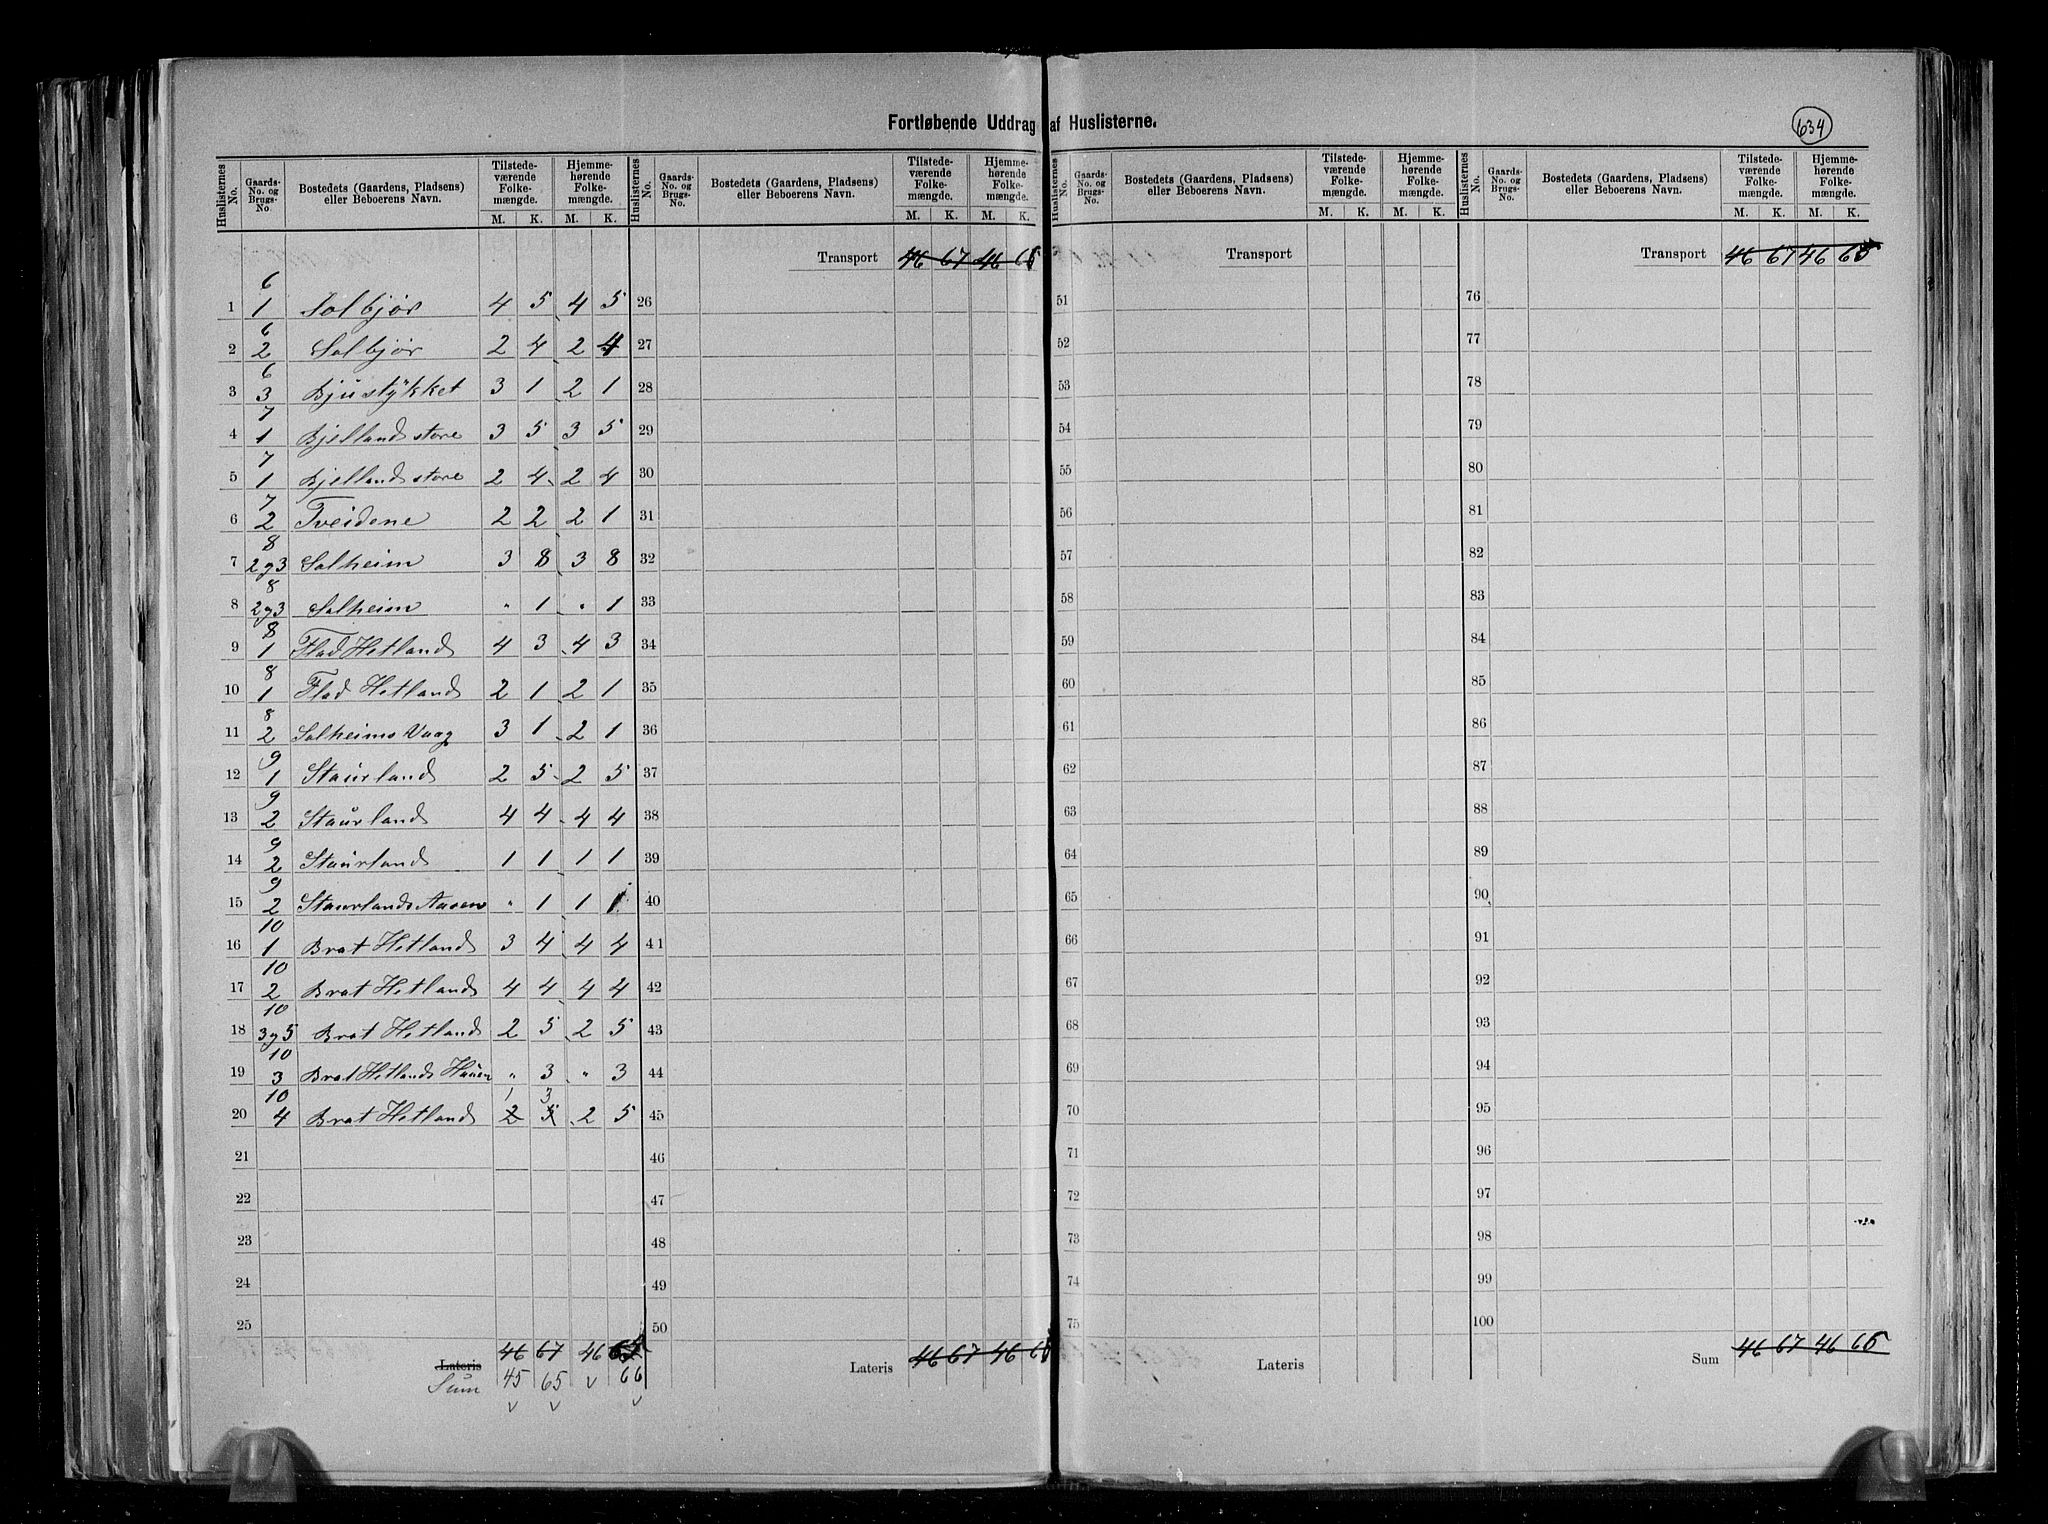 Fortløbende Uddrag af Huslisterne.
634
Huslisternes No. | Gaards-No. og Brugs-No. | Bostedets (Gaardens, Pladsens) eller Beboerens Navn. | Tilstedeværende Folkemængde. M. K. | Hjemmehørende Folkemængde. M. K.
1 | 6 1 | Solbjør | 4 | 5 | 4 | 5
2 | 6 2 | Solbjør | 2 | 4 | 2 | 4
3 | 6 3 | Bjustykket | 3 | 1 | 2 | 1
4 | 7 1 | Bjelland store | 3 | 5 | 3 | 5
5 | 7 1 | Bjelland store | 2 | 4 | 2 | 4
6 | 7 2 | Tveidene | 2 | 2 | 2 | 1
7 | 8 2 g 3 | Solheim | 3 | 8 | 3 | 8
8 | 8 2 g 3 | Solheim | " | 1 | " | 1
9 | 8 1 | Flad Hetland | 4 | 3 | 4 | 3
10 | 8 1 | Flad Hetland | 2 | 1 | 2 | 1
11 | 8 2 | Solheims Vaag | 3 | 1 | 2 | 1
12 | 9 1 | Staurland | 2 | 5 | 2 | 5
13 | 9 2 | Staurland | 4 | 4 | 4 | 4
14 | 9 2 | Staurland | 1 | 1 | 1 | 1
15 | 9 2 | Staurlands Aasen | " | 1 | 1 | 1
16 | 10 1 | Brat Hetland | 3 | 4 | 4 | 4
17 | 10 2 | Brat Hetland | 4 | 4 | 4 | 4
18 | 10 3 g 5 | Brat Hetland | 2 | 5 | 2 | 5
19 | 10 3 | Brat Hetlands Hauen | " | 3 | " | 3
20 | 10 4 | Brat Hetland | 2 1 | 5 3 | 2 | 5
21
22
23
24
25
Lateris 46 67 46
Sum 45 65 v 66
v v v
Huslisternes No. | Gaards-No. og Brugs-No. | Bostedets (Gaardens, Pladsens) eller Beboerens Navn. | Tilstedeværende Folkemængde. M. K. | Hjemmehørende Folkemængde. M. K.
Transport 46 67 46 65
26
27
28
29
30
31
32
33
34
35
36
37
38
39
40
41
42
43
44
45
46
47
48
49
50
Lateris 46 67 46 65
Huslisternes No. | Gaards-No. og Brugs-No. | Bostedets (Gaardens, Pladsens) eller Beboerens Navn. | Tilstedeværende Folkemængde. M. K. | Hjemmehørende Folkemængde. M. K.
Transport
51
52
53
54
55
56
57
58
59
60
61
62
63
64
65
66
67
68
69
70
71
72
73
74
75
Lateris
Huslisternes No. | Gaards-No. og Brugs-No. | Bostedets (Gaardens, Pladsens) eller Beboerens Navn. | Tilstedeværende Folkemængde. M. K. | Hjemmehørende Folkemængde. M. K.
Transport 46 67 46 65
76
77
78
79
80
81
82
83
84
85
86
87
88
89
90
91
92
93
94
95
96
97
98
99
100
Sum 46 67 46 65